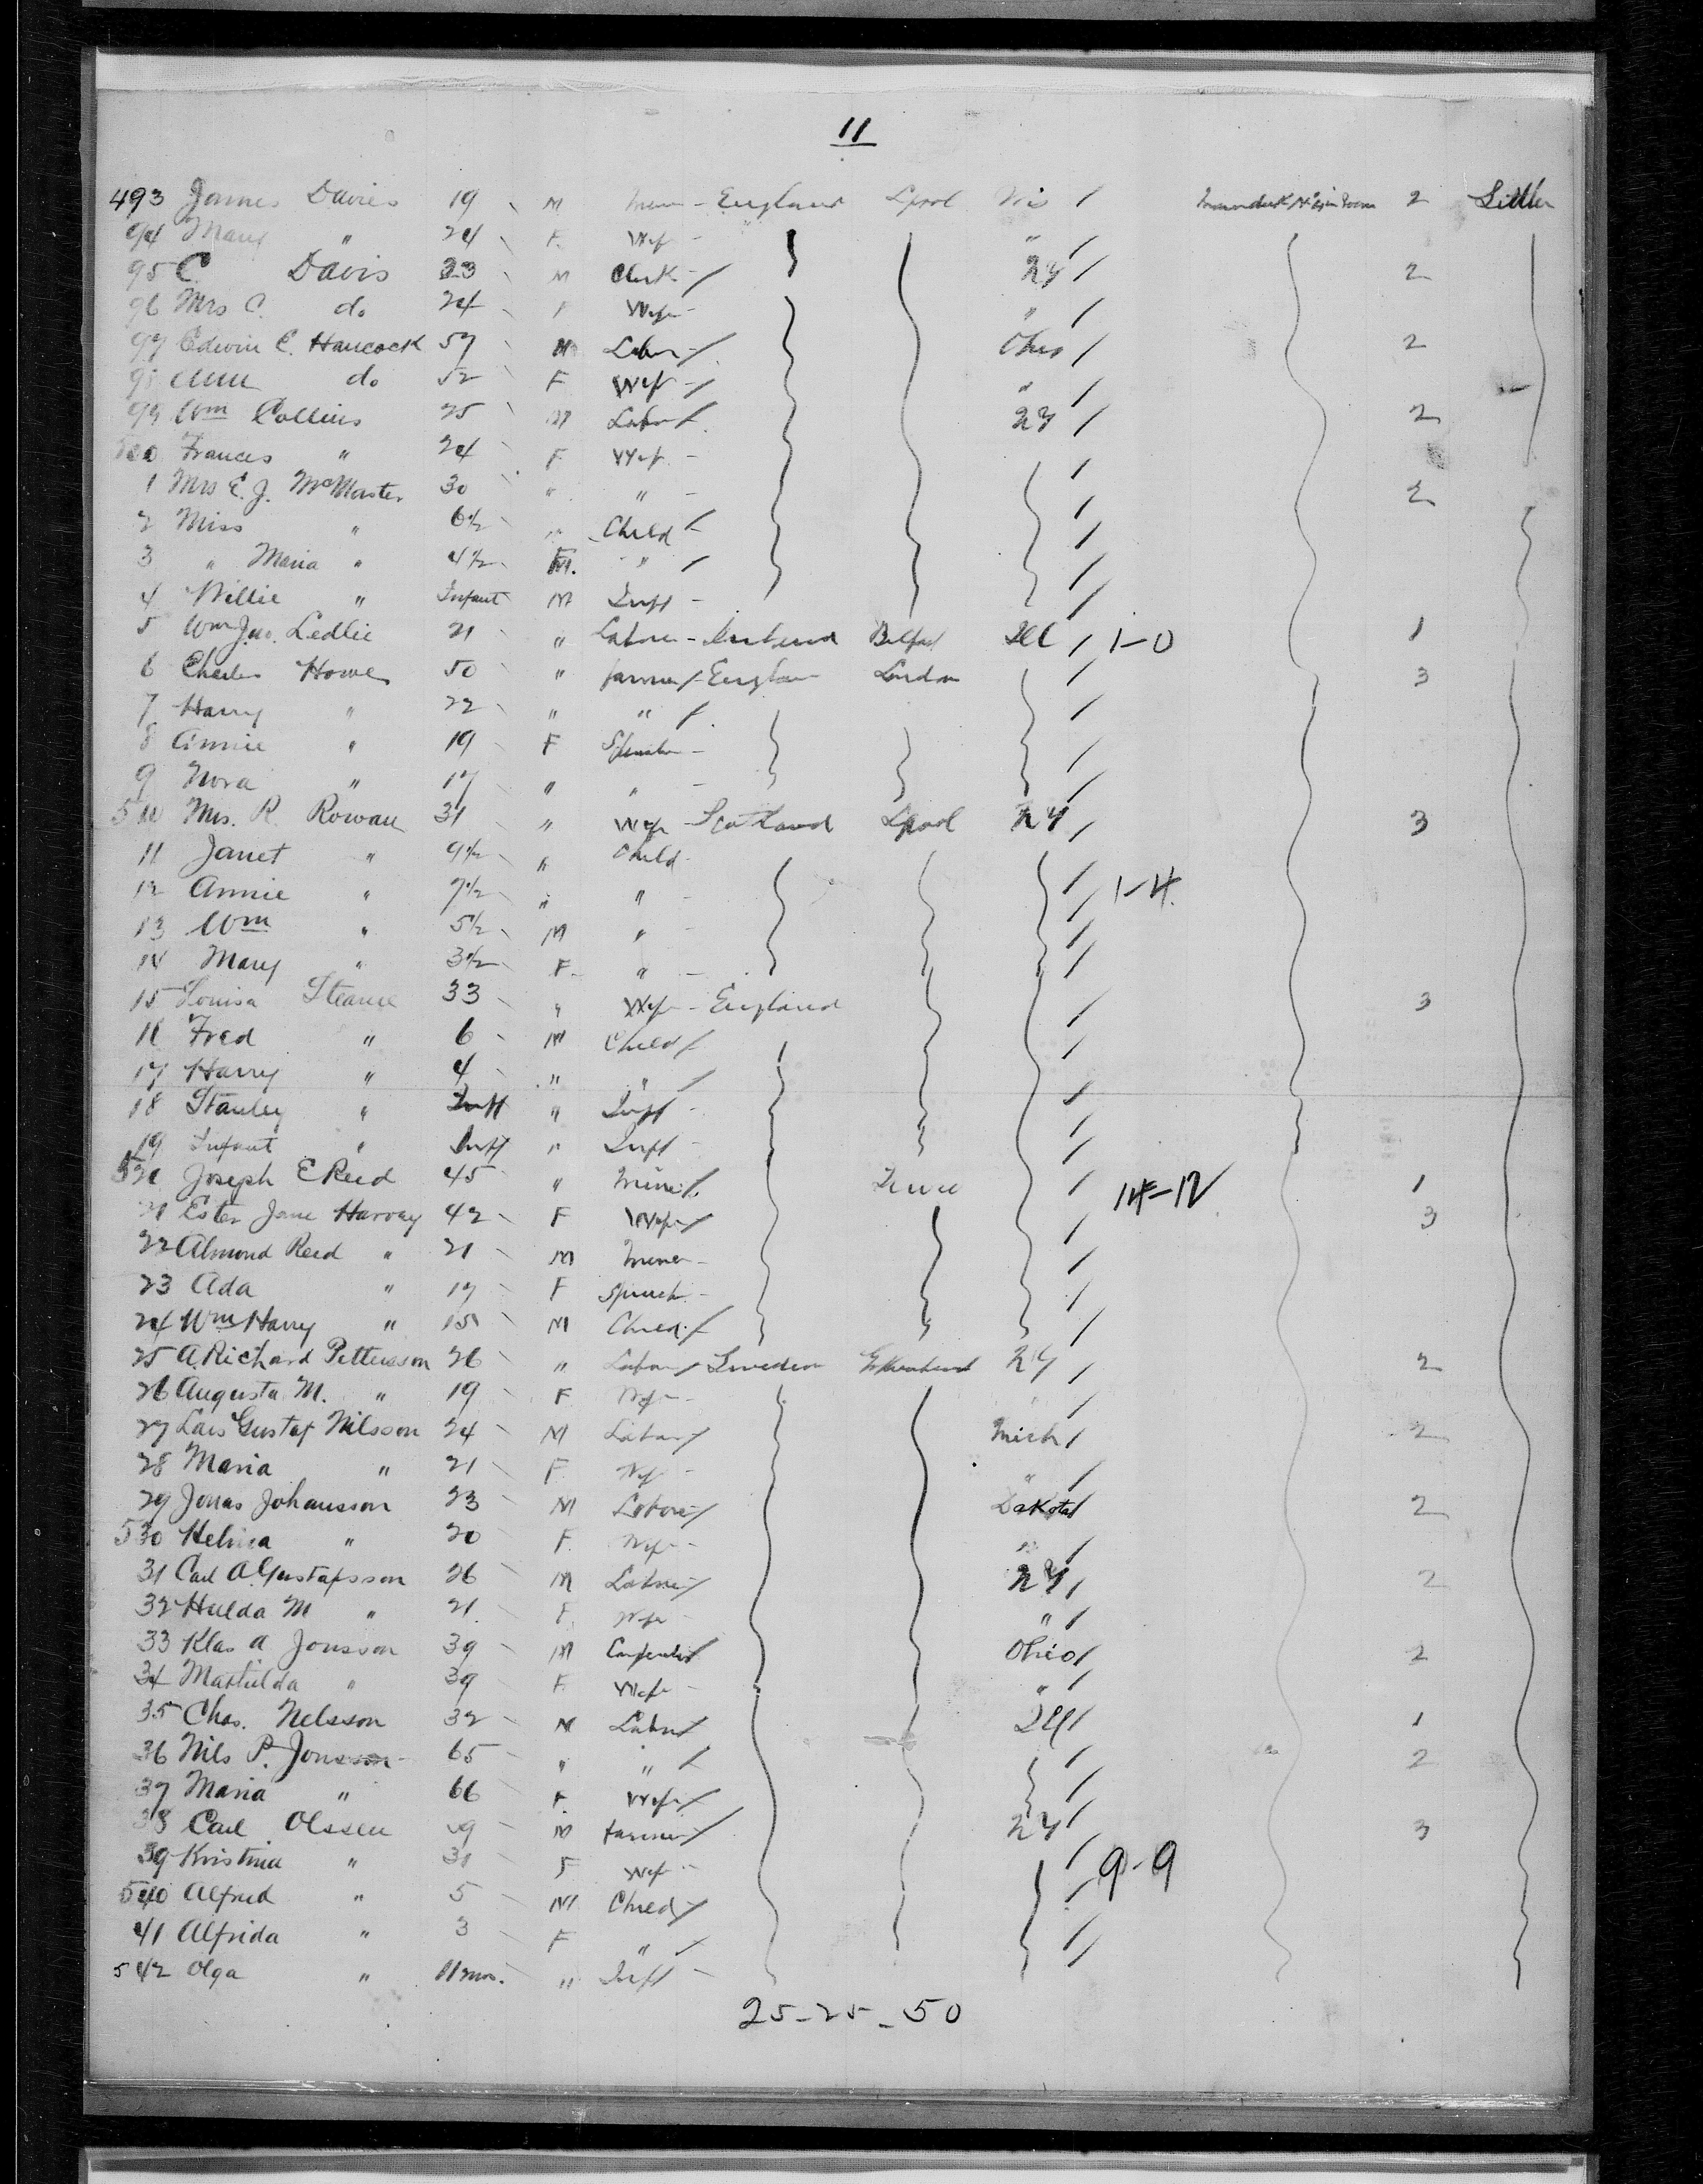 11
493 James Davies 19 M - England Lpool Wis 2 Settler
94 Mary " 24 F. Wife - "
95 C Davis 23 M Clerk NY 2
96 Mrs C. do 24 F Wife - "
97 Edwin C. Hancock 57 M Labor Ohio 2
98 Ann do 52 F Wife - "
99 Wm Collins 25 M Labor NY 2
500 Frances " 24 F Wife -
1 Mrs E. J. McMaster 30 " " - 2
2 Miss " 6½ " Child
3 " Maria " 4½ F. "
4 Willie " Infant M Inft -
5 Wm Jno. Ledlie 21 " Laborer - Ireland Belfast Ill 1-0 1
6 Charles Howe 50 " farmer England London 3
7 Harry " 22 " "
8 Annie " 19 F Spinster -
9 Nora " 17 " " -
510 Mrs. R. Rowan 31 " Wife - Scotland Lpool NY 3
11 Janet " 9½ " Child -
12 Annie " 7½ " " - 1-4
13 Wm " 5½ M " -
14 Mary " 3½ F - " -
15 Louisa Steance 33 " Wife - England 3
16 Fred " 6 M Child
17 Harry " 4 " "
18 Stanley " Inft " Inft -
19 Infant " Inft " Inft -
520 Joseph E Reed 45 " Miner 14-12 1
21 Ester Jane Harvey 42 F Wife 3
22 Almond Reed " 21 M Miner -
23 Ada " 17 F Spinst. -
24 Wm Harry " 15 M Child
25 A Richard Pettersson 26 " Labor Sweden NY 2
26 Augusta M. " 19 F Wife - "
27 Lars Gustaf Nilsson 24 M Labor Mich 2
28 Maria " 21 F Wife - "
29 Jonas Johansson 23 M Labore Dakota 2
530 Helina " 20 F. Wife - "
31 Carl A. Gustafsson 26 M Labore NY 2
32 Hulda M " 21 F. Wife - "
33 Klas A Jonsson 39 M Carpenter Ohio 2
34 Mathilda " 39 F Wife - "
35 Chas. Nelsson 32 M Labor Ill 1
36 Nils P. Jonsson 65 " " 2
37 Maria " 66 F. Wife
38 Carl Olssen M farmer NY 3
39 Kristina " 31 F Wife - 9-9
540 Alfred " 5 M Child
41 Alfrida " 3 F "
542 Olga " 11 mos. " Inft -
25-25-50